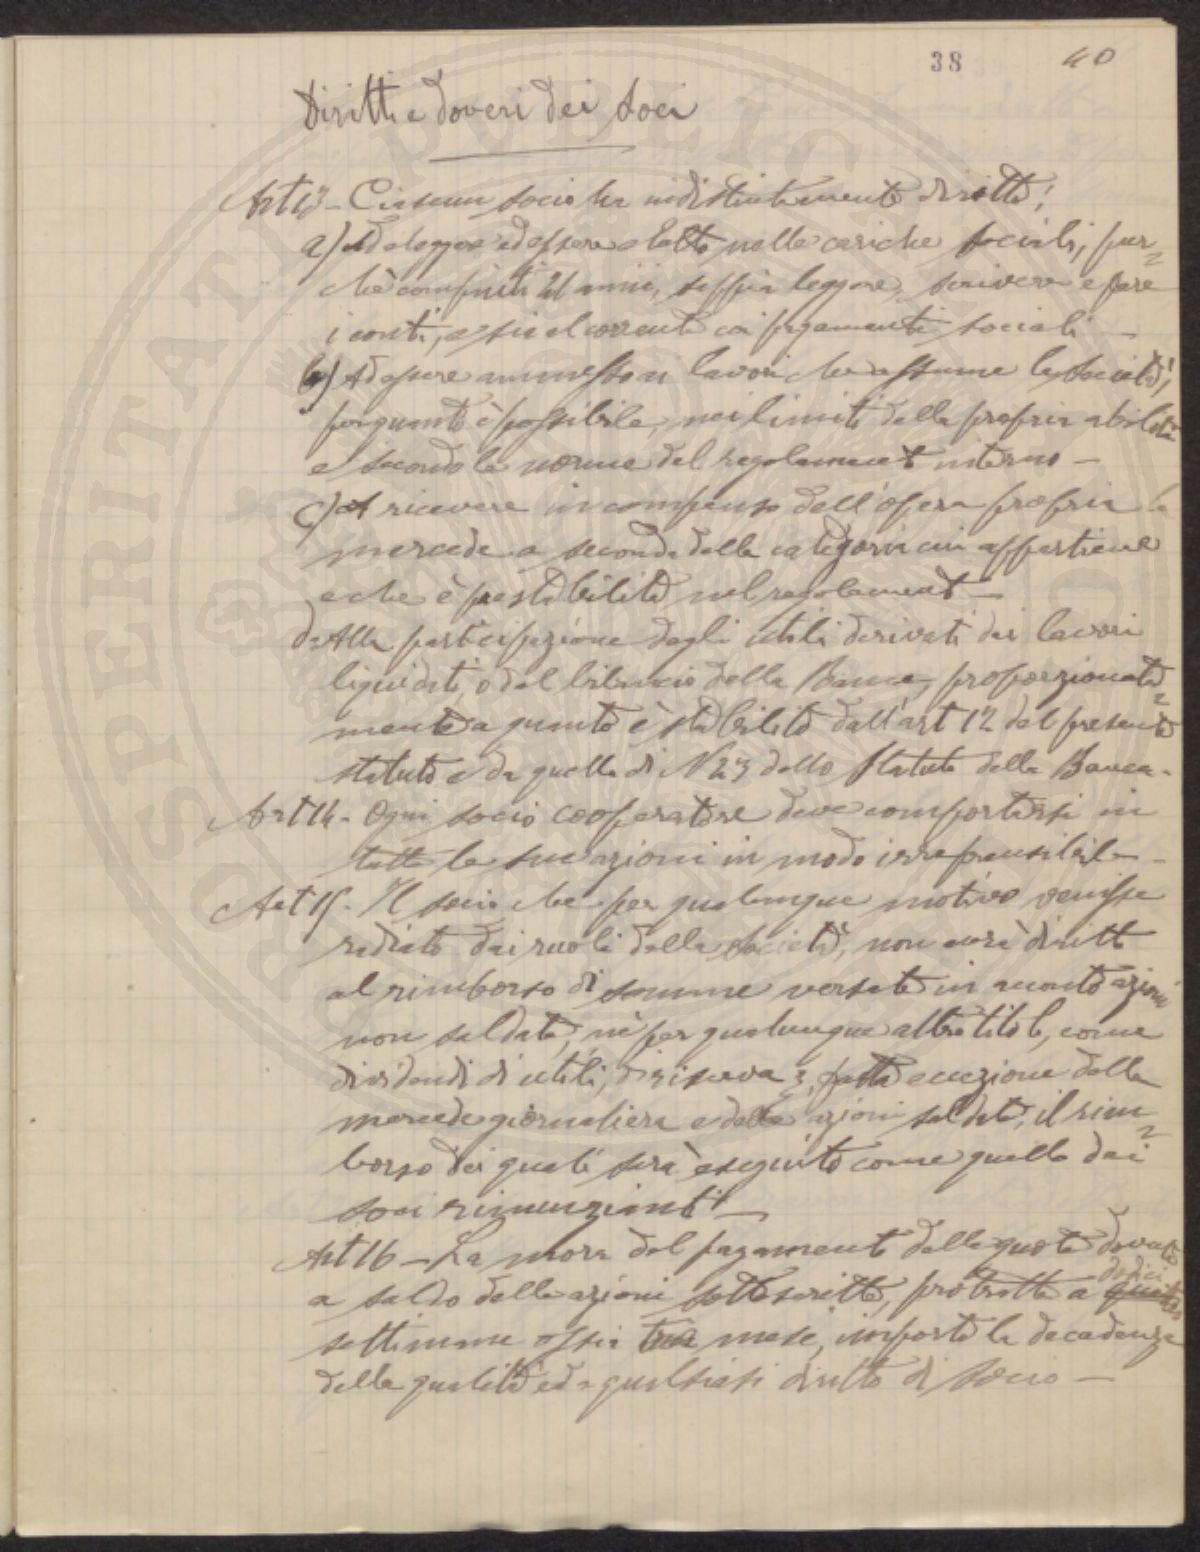 38 40
Diritti e doveri dei Soci
Art 13 - Ciascun socio ha indistintamente diritto:
a) Ad eleggere ed essere eletto nelle cariche sociali, pur=
chè compiuti 21 anni, sappia leggere, scivere e fare
i conti, e sia al corrente coi pagamenti sociali -
b) Ad essere ammesso ai lavori che assume la Società,
per quanto è possibile, nei limiti della propria abilità
e secondo le norme del regolamento interno -
c) A ricevere in compenso dell'opera propria la
mercede a seconda della categoria cui appartiene
e che è prestabilita nel regolamento -
d) Alla participazione degli utili derivati dai lavori
liquidati, o dal bilancio della Banca, proporzionata=
mente a quanto è stabilito dall'art 12 del presente
statuto e da quello di N 23 dello Statuto della Banca -
Art 14 - Ogni socio cooperatore deve comportarsi in
tutte le sue azioni in modo irreprensibile -
Art 15 - Il socio che per qualunque motivo venisse
radiato dai ruoli della Società, non avrà diritto
al rimborso di somme versate in acconto azioni
non saldate, nè per qualunque altro titolo, come
dividendi di utili, di riserva, fatta eccezione della
mercede giornaliera e delle azioni saldate, il rim=
borso dei quali sarà eseguito come quello dei
soci rinunzianti -
Art 16 - La mora del pagamento delle quote dovute
dodici
a saldo delle azioni sottoscritte, protratta a
settimane ossia tre mesi, importa la decadenza
della qualità ed a qualsiasi diritto di socio -